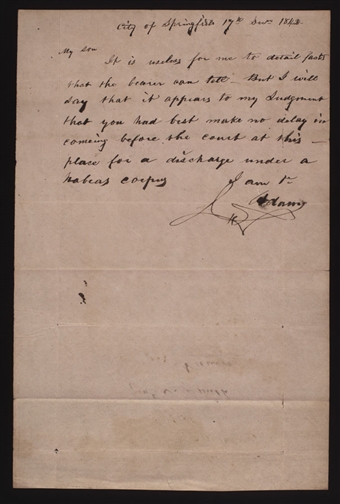 City of Springfield 17th Decr 1842
My son
It is useless for me to detail facts
that the bearer can tell. But I will
say that it appears to my Judgment
that you had best make no delay in
comeing before the court at this
place for a discharge under a
habeas corpus
I am &c
J Adams